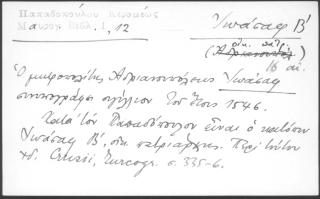 Παπαδοπούλου Κεραμέως
Μαυρογ. Βιβλ. 1, 12
Ἰωάσαφ Β΄
(Ἀδριανουπόλ)
οἰκ. πατρ.
16 αἰ.
Ὁ μητροπολίτης Ἀδριανουπόλεως Ἰωάσαφ
συνυπογράφει σιγίλλιον τοῦ ἔτους 1546.
Κατὰ τὸν Παπαδόπουλον εἶναι ὁ κατόπιν
Ἰωάσαφ Β΄, οἰκ. πατριάρχης. Περὶ τούτου
ἰδ. Crusii, Turcogr. σ. 335-6.